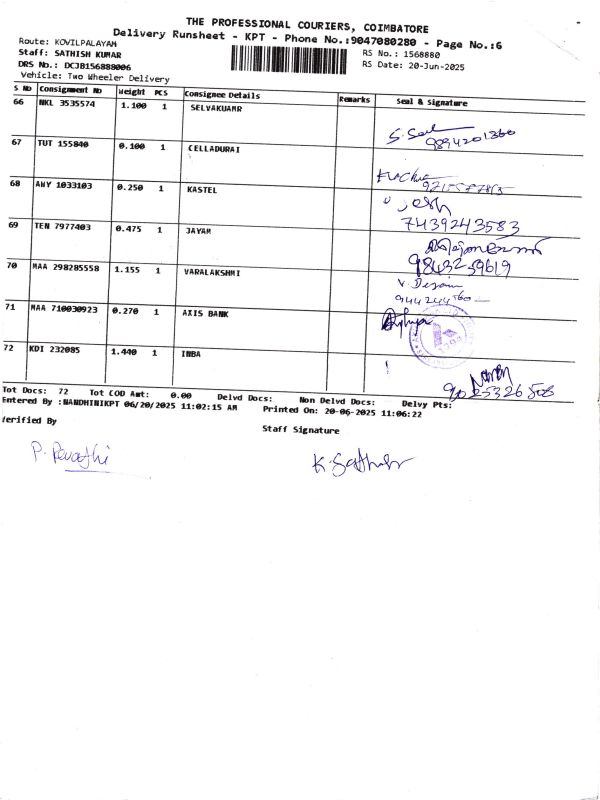 THE PROFESSIONAL COURIERS, COIMBATORE
Delivery Runsheet - KPT - Phone No.:9047080280 - Page No.:6
Route: KOVILPALAYAM
Staff: SATHISH KUMAR
RS No.: 1568880
DRS No.: DCJB156888006
RS Date: 20-Jun-2025
Vehicle: Two Wheeler Delivery
S No Consignment No Weight PCS Consignee Details Remarks Seal & Signature
66 NKL 3535574 1.100 1 SELVAKUAMR
9894201360
67 TUT 155840 0.100 1 CELLADURAI
68 AWY 1033103 0.250 1 KASTEL
7439243583
69 TEN 7977403 0.475 1 JAYAM
9843259619
70 MAA 298285558 1.155 1 VARALAKSHMI
71 MAA 710030923 0.270 1 AXIS BANK
72 KDI 232085 1.440 1 INBA
9025326508
Tot Docs: 72 Tot COD Amt: 0.00 Delvd Docs: Non Delvd Docs: Delvy Pts:
Entered By :NANDHINIKPT 06/20/2025 11:02:15 AM Printed On: 20-06-2025 11:06:22
Verified By
Staff Signature